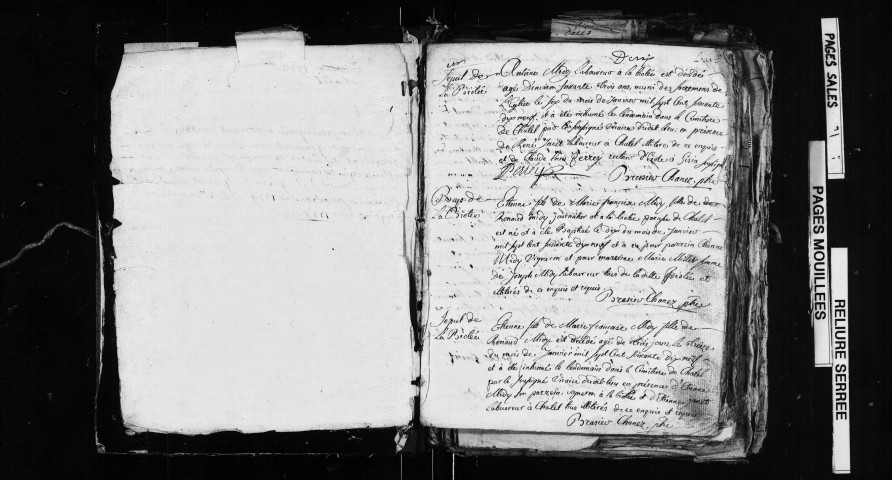 Sepult de
La Biolée
Antoine Midy Laboureur a la biolée est décédé
agé d'environ soixante trois ans, muni des sacremens de
l'Eglise le six du mois de Janvier mil sept cent soixante
dix neuf, et a été inhumé le lendemain dans le Cimitiere
de Chatel par le soussigné vicaire dudit lieu, en présence
de René Janet Laboureur a Chatel illitéré de ce enquis
et de Claude Perrey recteur d'école a Gisia soussigné
Perrey
Brasier Chanez, ptre
Bapt de
La Biolée
Etienne fils de Marie françoise Midy fille de
Renaud Midy journalier et a la biolée paroisse de Chatel
est né et a été Baptisé le dix du mois de Janvier
mil sept cent soixante dix neuf et a eu pour parrein Etienne
Midy Vigneron et pour marreine Marie Millet femme
de Joseph Midy Laboureur tous de la ditte Biolée et
illitérés de ce enquis et requis
Brasier Chanez, ptre
Sepul de
La Biolée
Etienne fils de Marie françoise Midy fille de
Renaud Midy est décédé agé de trois jours le treize
du mois de Janvier mil sept cent soixante dix neuf
et a été inhumé le lendemain dans le Cimitiere de Chatel
par le soussigné Vicaire dudit lieu en présence d'Etienne
Midy son parrein, vigneron a la biolée et d'Etienne Janet
Laboureur a Chatel tous illitérés de ce enquis et requis
Brasier Chanez, ptre
PAGES SALES
PAGES MOUILLEES
RELIURE SERREE